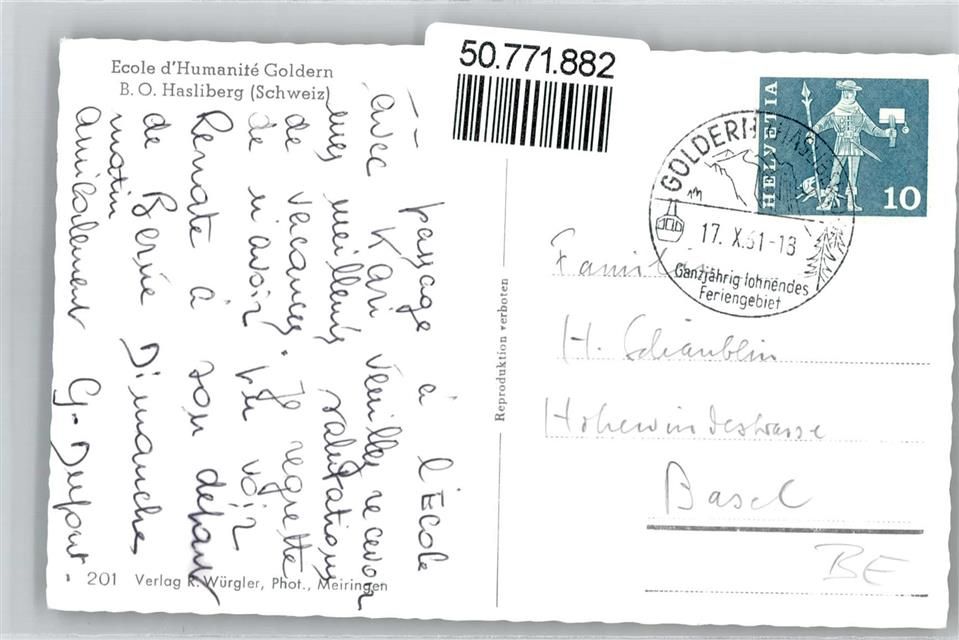 50.771.882
Ecole d'Humanité Goldern
B. O. Hasliberg (Schweiz)
HELVETIA
10
GOLDERN HASLIBERG
17. X. 61-18
Ganzjährig lohnendes
Feriengebiet
Reproduktion verboten
-- passage à l'Ecole
avec Kari veuillez recevoir
mes meilleures salutations
de vacances. Je regrette
de n'avoir pu voir
Renate à son départ
de Bernie Dimanche
matin
amicalement G. Dupart
Famil
H. Schäublin
Hohewindestrasse
Basel
BE
201 Verlag R. Würgler, Phot., Meiringen